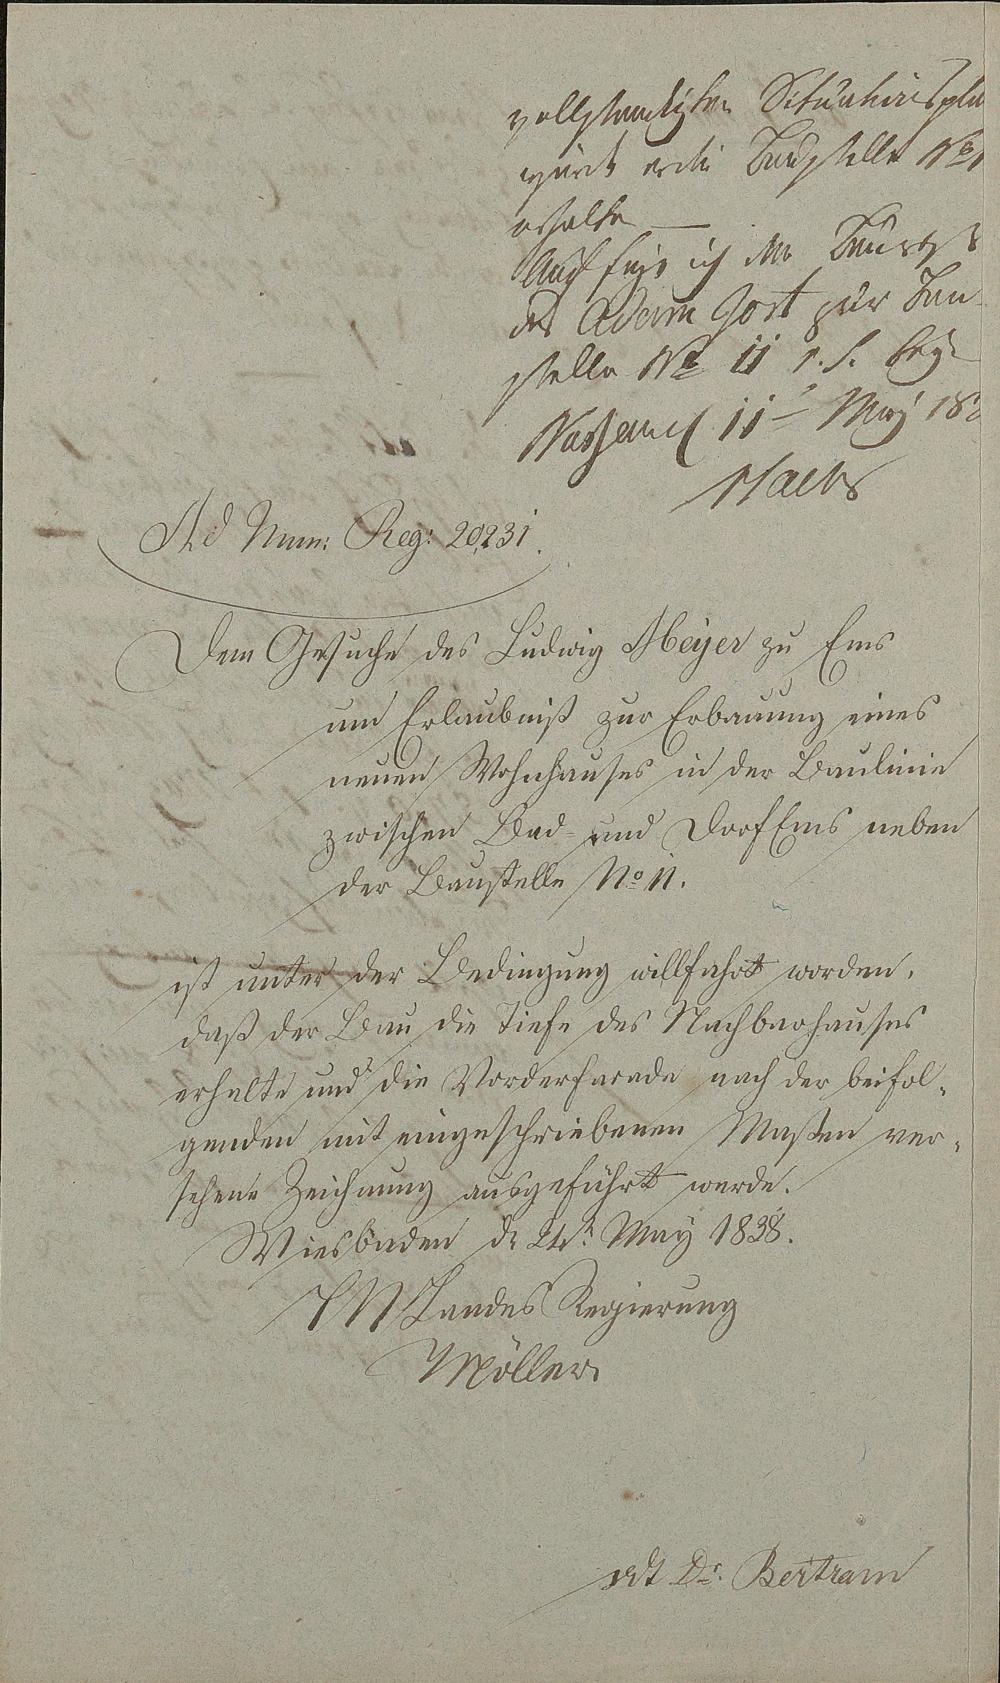 vollständigten Situationspla
zurück
erhalte —
Auch füge ich
des Adam Jost zur Bau
stelle No 11 r. S. bey
Nassau 11 May 183
Ad Num: Reg: 20,231.
Dem Gesuche des Ludwig Meyer zu Ems
um Erlaubniß zur Erbauung eines
neuen Wohnhauses in der Baulinie
zwischen Bad- und Dorf Ems neben
der Baustelle No 11.
ist unter der Bedingung willfahrt worden,
daß der Bau die Tiefe des Nachbarhauses
erhalte und die Vorderfacade nach der beifol-
genden mit eingeschriebenen Maßen ver-
sehene Zeichnung ausgeführt werde.
Wiesbaden d. 24n. May 1838.
HN Landes Regierung
Möller
vdt Dr. Bertram